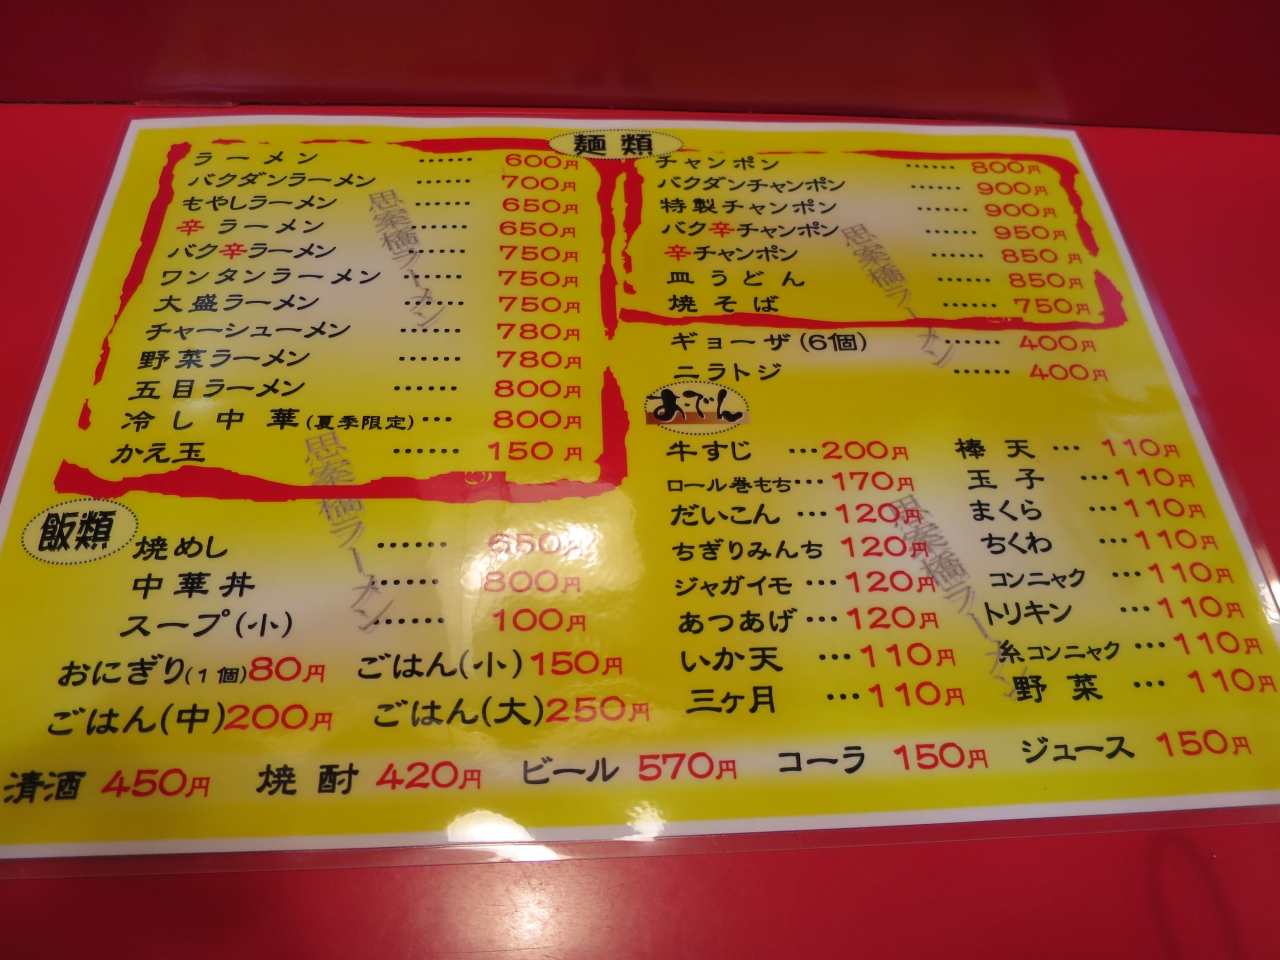 麺類
ラーメン …… 600円
バクダンラーメン …… 700円
もやしラーメン …… 650円
辛ラーメン …… 650円
バク辛ラーメン …… 750円
ワンタンラーメン …… 750円
大盛ラーメン …… 750円
チャーシューメン …… 780円
野菜ラーメン …… 780円
五目ラーメン …… 800円
冷し中華(夏季限定) … 800円
かえ玉 …… 150円
チャンポン …… 800円
バクダンチャンポン …… 900円
特製チャンポン …… 900円
バク辛チャンポン …… 950円
辛チャンポン …… 850円
皿うどん …… 850円
焼そば …… 750円
ギョーザ(6個) …… 400円
ニラトジ …… 400円
おでん
牛すじ … 200円
ロール巻もち … 170円
だいこん … 120円
ちぎりみんち 120円
ジャガイモ … 120円
あつあげ … 120円
いか天 … 110円
三ヶ月 … 110円
棒天 … 110円
玉子 … 110円
まくら … 110円
ちくわ … 110円
コンニャク … 110円
トリキン … 110円
糸コンニャク … 110円
野菜 … 110円
飯類
焼めし …… 650円
中華丼 …… 800円
スープ(小) …… 100円
おにぎり(1個) 80円 ごはん(小) 150円
ごはん(中) 200円 ごはん(大) 250円
清酒 450円 焼酎 420円 ビール 570円 コーラ 150円 ジュース 150円
思案橋ラーメン
思案橋ラーメン
思案橋ラーメン
思案橋ラーメン